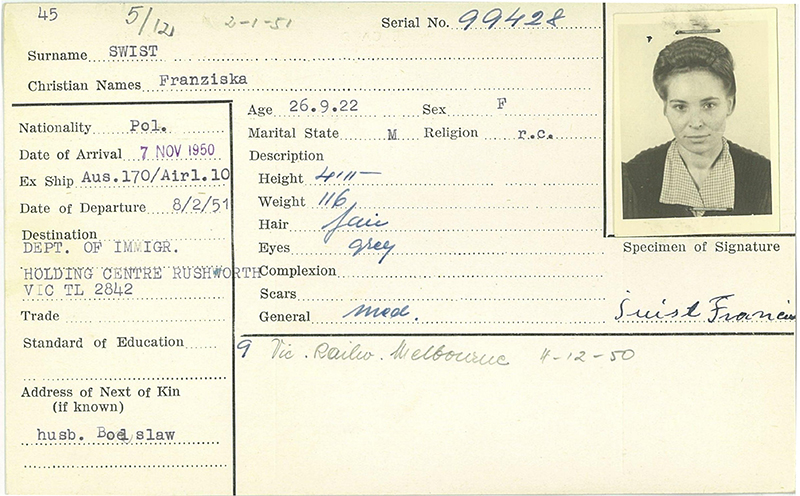 45 5/12 2-1-51 Serial No. 99428
Surname SWIST
Christian Names Franziska
Nationality Pol.
Date of Arrival 7 NOV 1950
Ex Ship Aus.170/Airl.10
Date of Departure 8/2/51
Destination
DEPT. OF IMMIGR.
HOLDING CENTRE RUSHWORTH
VIC TL 2842
Trade
Standard of Education
Address of Next of Kin
(if known)
husb. slaw
Age 26.9.22 Sex F
Marital State M Religion r.c.
Description
Height 4'11"
Weight 116
Hair fair
Eyes grey
Complexion
Scars
General med.
Specimen of Signature
Swist Francis
9 Vic. Railw. Melbourne 4-12-50